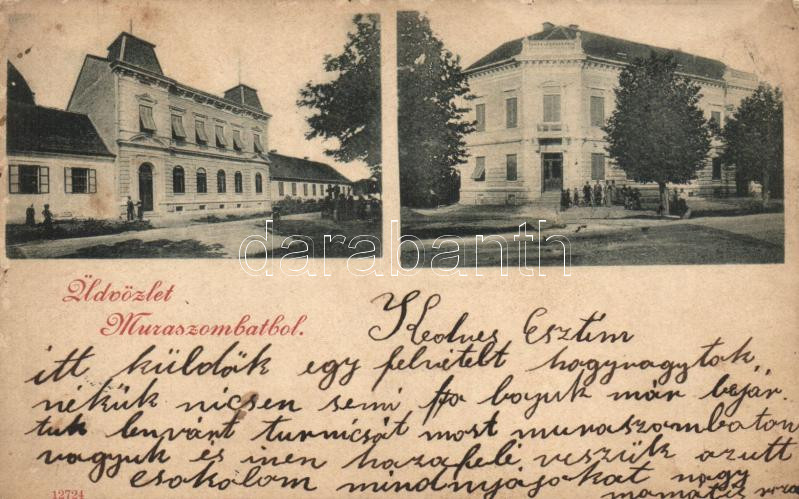 darabanth
Üdvözlet
Muraszombatbol.
Kedves Esztím
itt küldök egy felvételt hogyvagytok,
nékük nicsen semi bajuk már bejár.
tuk turnicsát most muraszombaton
vagyuk és inen hazafelé veszük azutt
csokolom mindnyájokat nagy
12724